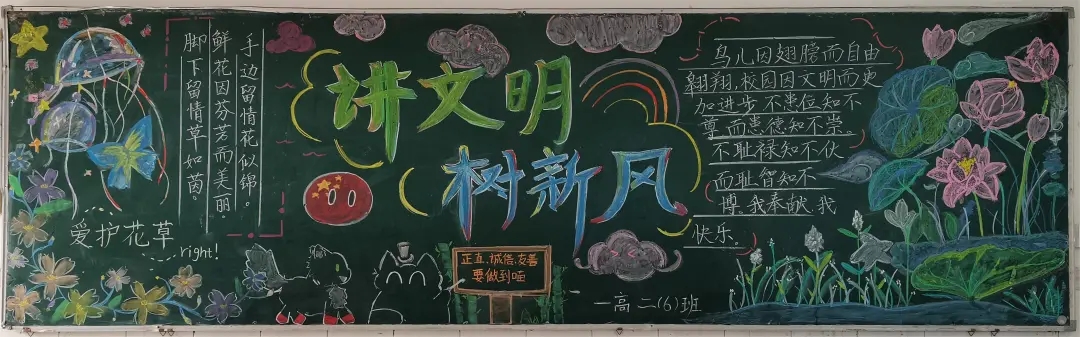 手边留情花似锦。
鲜花因芬芳而美丽。
脚下留情草如茵。
爱护花草
right!
讲文明
树新风
正直、诚信、友善
要做到喔
鸟儿因翅膀而自由
翱翔,校园因文明而更
加进步,不患位知不
尊,而患德知不崇。
不耻禄知不伙
而耻智知不
博,我奉献,我
快乐。
一高二(6)班